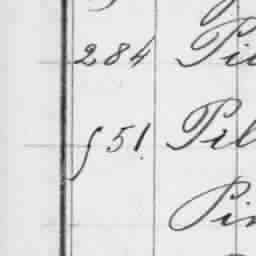 284 Pil
551 Pil
Pin